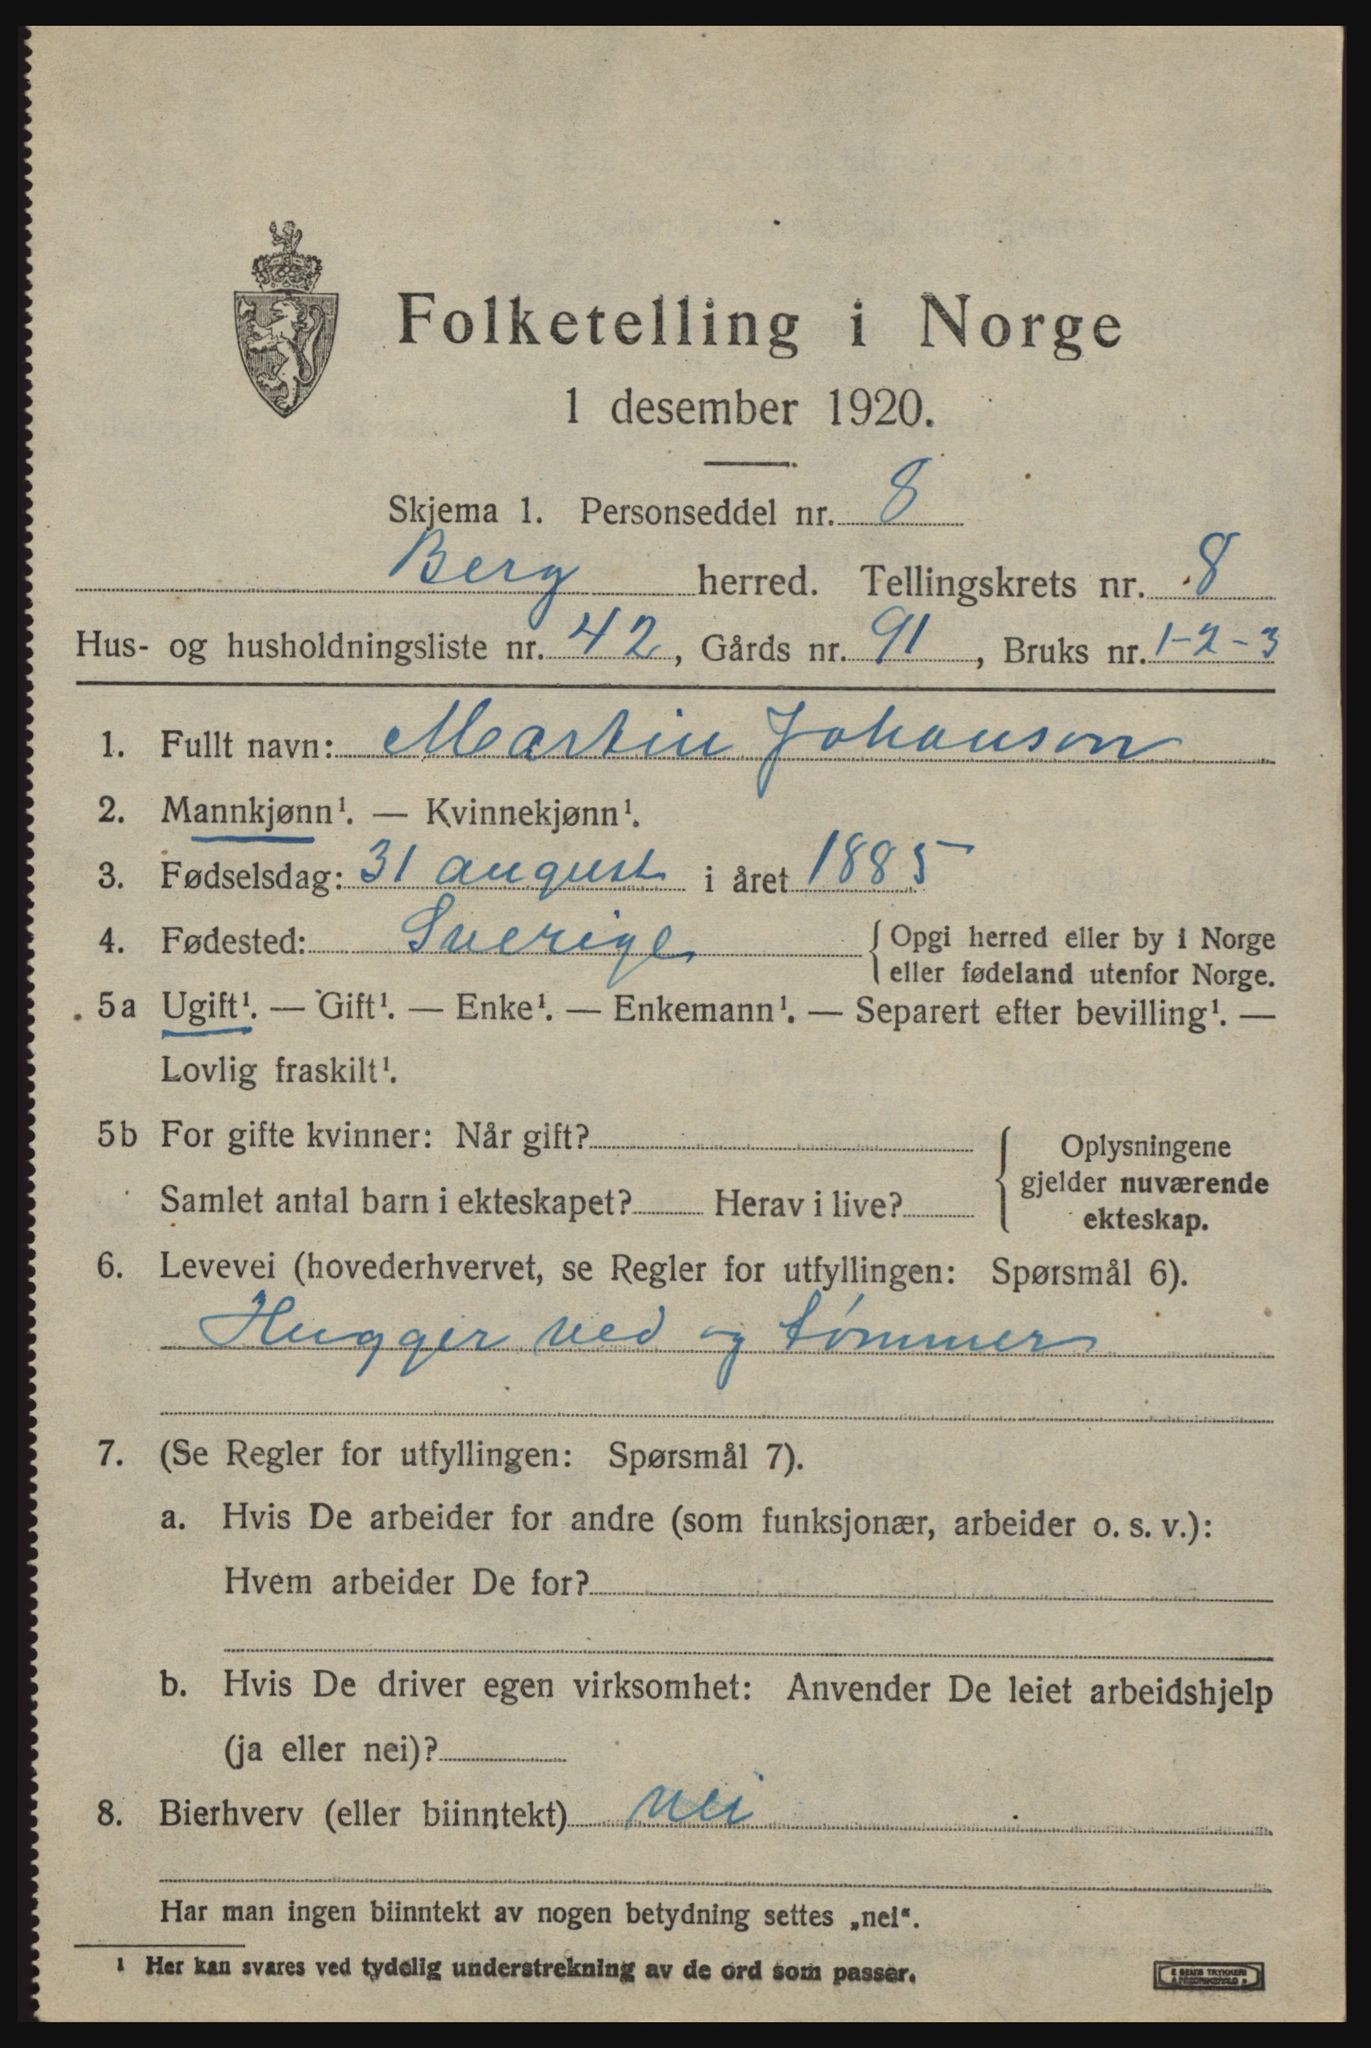 Folketelling i Norge
1 desember 1920.
Skjema 1. Personseddel nr. 8
Berg herred. Tellingskrets nr. 8
Hus- og husholdningsliste nr. 42, Gårds nr. 91, Bruks nr. 1-2-3
1. Fullt navn: Martin Johanson
2. Mannkjønn¹. — Kvinnekjønn¹.
3. Fødselsdag: 31 august i året 1885
4. Fødested: Sverige { Opgi herred eller by i Norge
eller fødeland utenfor Norge.
5a Ugift¹. — Gift¹. — Enke¹. — Enkemann¹. — Separert efter bevilling¹. —
Lovlig fraskilt¹.
5b For gifte kvinner: Når gift?
Samlet antal barn i ekteskapet? Herav i live?
{ Oplysningene
gjelder nuværende
ekteskap.
6. Levevei (hovederhvervet, se Regler for utfyllingen: Spørsmål 6).
Hugger ved og tømmer
7. (Se Regler for utfyllingen: Spørsmål 7).
a. Hvis De arbeider for andre (som funksjonær, arbeider o. s. v.):
Hvem arbeider De for?
b. Hvis De driver egen virksomhet: Anvender De leiet arbeidshjelp
(ja eller nei)?
8. Bierhverv (eller biinntekt) nei
Har man ingen biinntekt av nogen betydning settes „nei“.
¹ Her kan svares ved tydelig understrekning av de ord som passer.